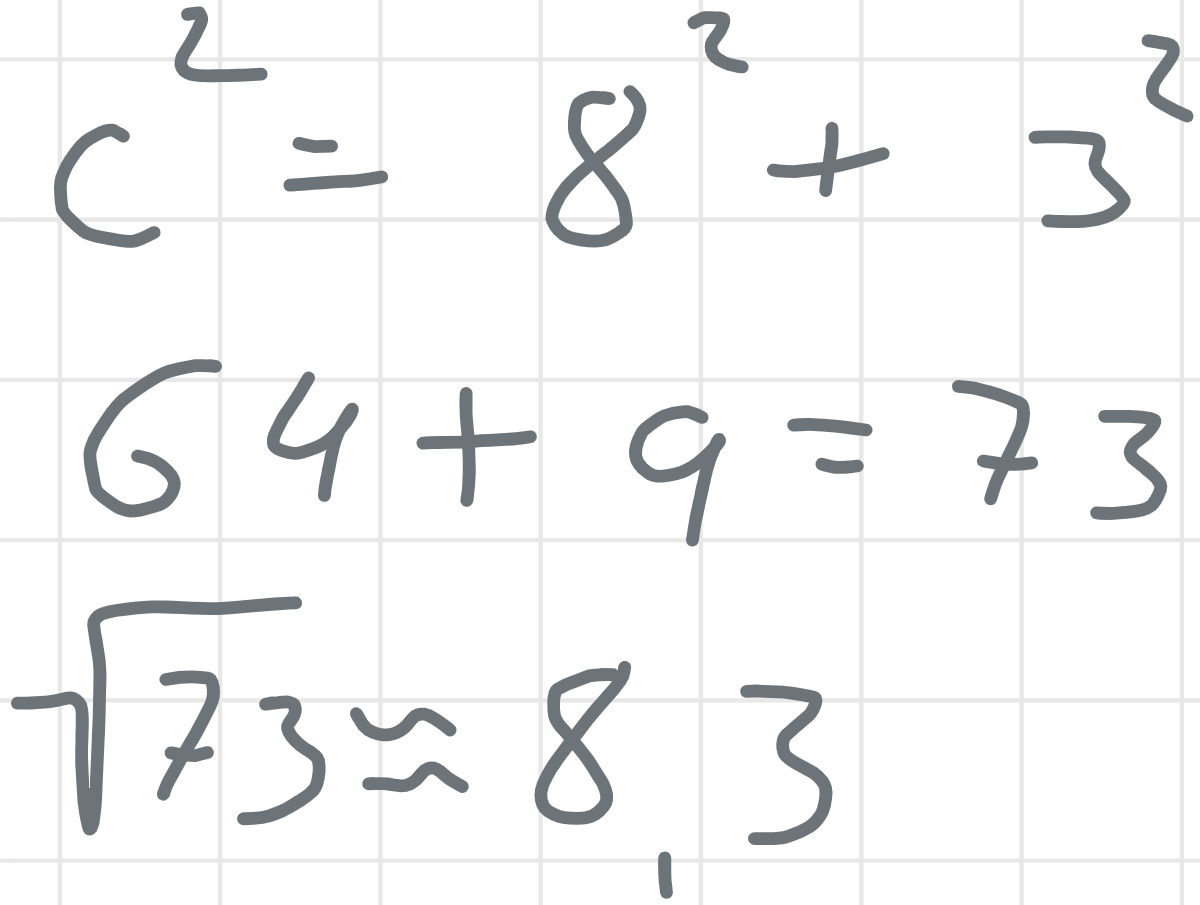 c² = 8² + 3²
64 + 9 = 73
√73 ≈ 8,3